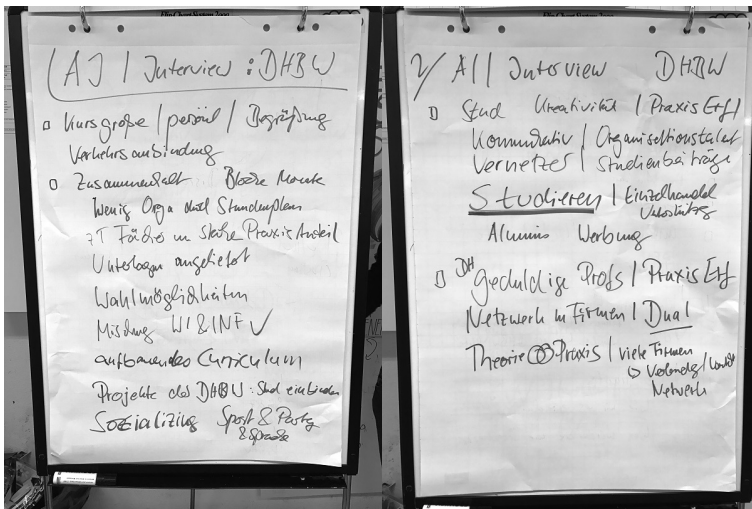 AI / Interview : DHBW
Kursgröße / persönl / Begrüßung
Verkehrsanbindung
Zusammenhalt Blöcke Monate
Wenig Orga durch Stundenplan
IT Fächer starke Praxis Anteil
Unterlagen angeleitet
Wahlmöglichkeiten
Mischung WI & INF ✓
aufbauendes Curriculum
Projekte des DHBW : Stud einbinden
Sozializing Sport & Party
& Sprache
2/ AI / Interview DHBW
Stud Kreativität / Praxis Erf /
Kommunikativ / Organisationstalent
Vernetzer / Studienbeiträge
Studieren / Einzelhandel
Alumnis Werbung
DH geduldige Profs / Praxis Erf
Netzwerk in Firmen / Dual
Theorie Praxis / viele Firmen
Netzwerk